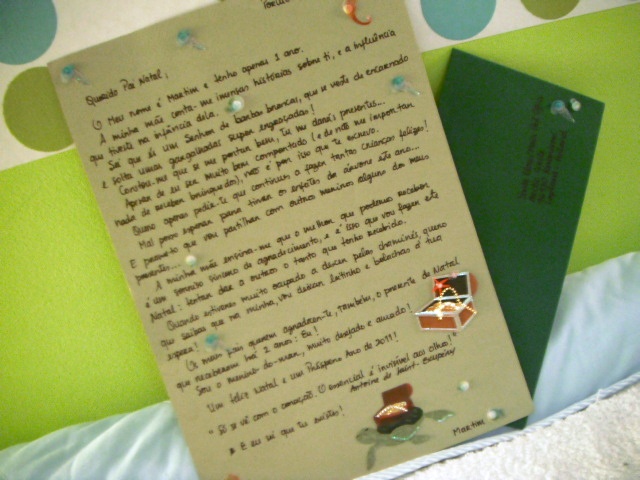 Querido Pai Natal,
O Meu nome é Martim e tenho apenas 1 ano.
A minha mãe conta-me imensas histórias sobre ti, e a influência
que tiveste na infância dela.
Sei que és um Senhor de barbas brancas, que se veste de encarnado
e solta umas gargalhadas super engraçadas!
Contou-me que se me portar bem, tu me darás presentes...
Apesar de eu ser muito bem comportado (e de não me importar
nada de receber brinquedos), não é por isso que te escrevo.
Quero apenas pedir-te que continues a fazer tantas crianças felizes!
Mal posso esperar para tirar os enfeites de árvore são ano...
E prometo que vou partilhar com outros meninos alguns dos meus
presentes...
A minha mãe ensina-me que o melhor que podemos receber
é um sorriso sincero de agradecimento, e é isto que vou fazer este
Natal: tentar dar a outros o tanto que tenho recebido.
Quando estiveres muito ocupado a descer pelas chaminés, quero
que saibas que na minha, vou deixar leitinho e bolachas à tua
espera!
Os meus pais querem agradecer-te, também, o presente de Natal
que receberam há 2 anos: Eu!
Sou o menino-do-mar, muito desejado e amado!
Um feliz Natal e um Próspero Ano de 2011!
"Só se vê com o coração. O essencial é invisível aos olhos!"
Antoine de Saint-Exupéry
* E eu sei que tu existes!
Martim